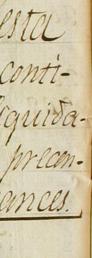 esta
conti-
quida-
precen-
ances.